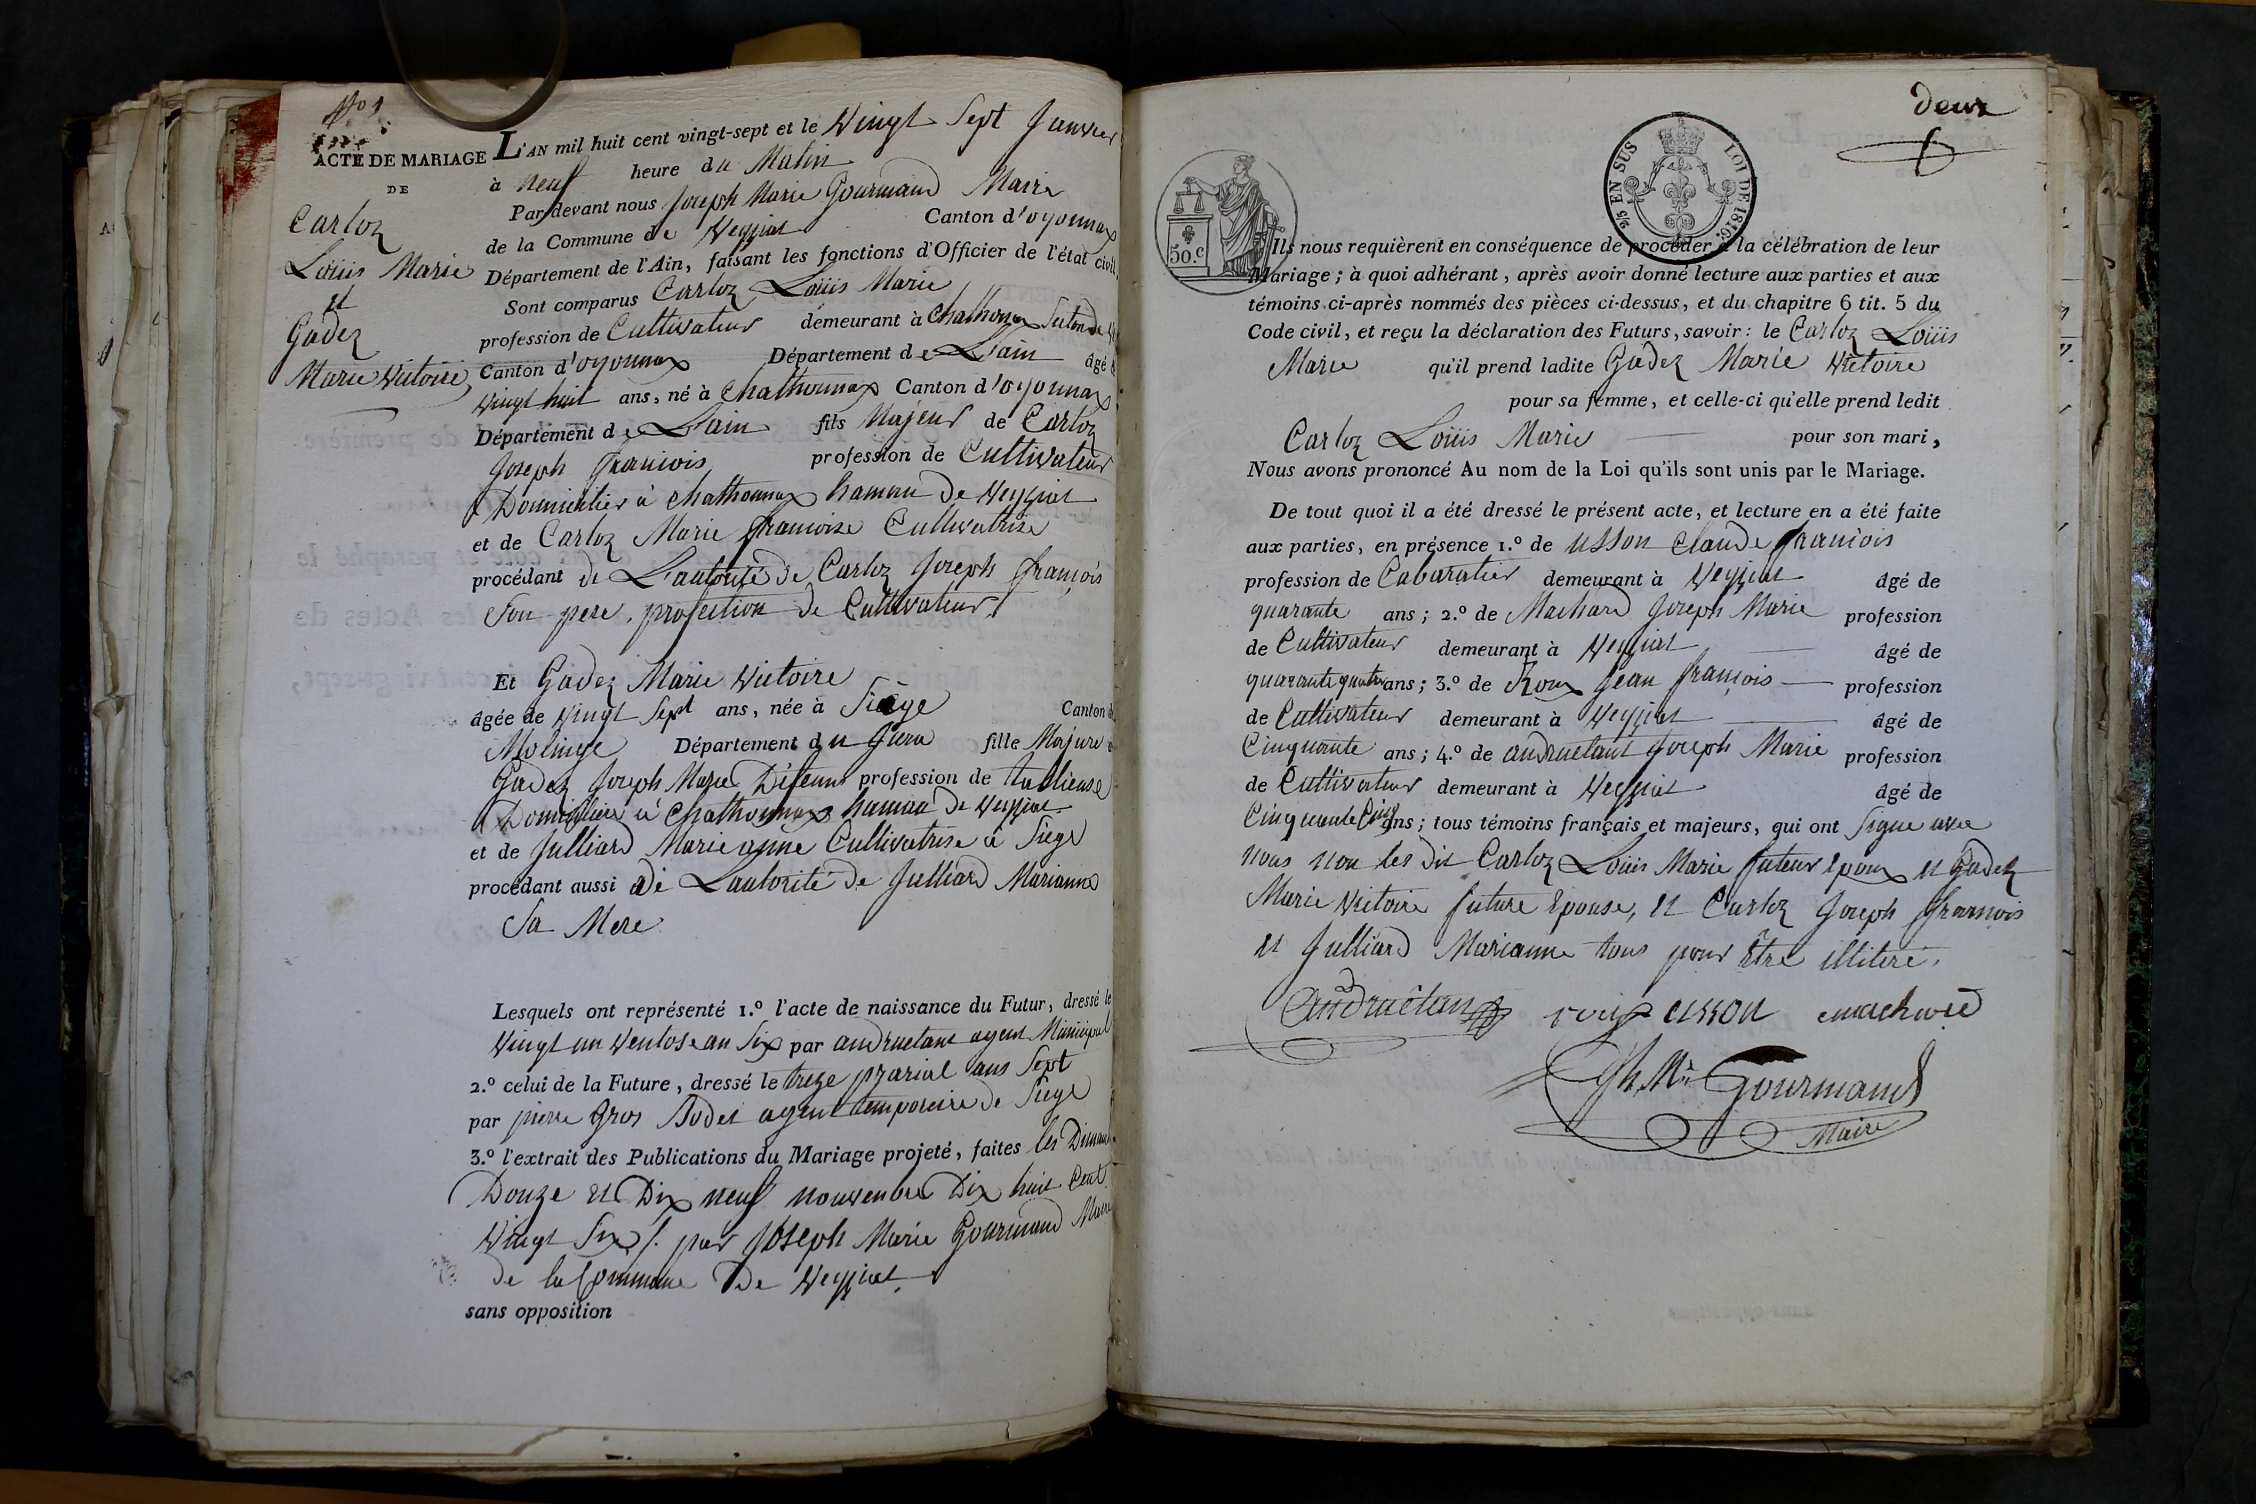 N.º 1
ACTE DE MARIAGE
DE
Carloz
Loüis Marie
et
Gadez
Marie Victoire
L'AN mil huit cent vingt-sept et le Vingt Sept Janvier
à neuf heure du Matin
Par devant nous Joseph Marie Gourmand Maire
de la Commune de Veyziat Canton d'oyonnax
Département de l'Ain, faisant les fonctions d'Officier de l'état civil
Sont comparus Carloz Loüis Marie
profession de Cultivateur demeurant à Chathonnax
Canton d'oyonnax Département de Lain âgé
Vingt huit ans, né à Chathonnax Canton d'oyonnax
Département de Lain fils Majeur de Carloz
Joseph francois profession de Cultivateur
Domicilier à Chathonnax hamau de Veyziat
et de Carloz Marie francoise Cultivatrise
procédant de L'autorité de Carloz Joseph françois
Son pere, profession de Cultivateur
Et Gadez Marie Victoire
âgée de Vingt Sept ans, née à Siège
Canton de
Molinge Département du Jura fille Majure
Gadez Joseph Marie Défeunt profession de
Domicilier à Chathonnax hamau de Veyziat
et de Julliard Marieanne Cultivatrise à Siege
procédant aussi de Lautorité de Julliard Marianne
Sa Mere
Lesquels ont représenté 1.º l'acte de naissance du Futur, dressé le
Vingt un Ventose an Six par andruetant agent Municipal
2.º celui de la Future, dressé le treze prarial ans Sept
par pierre Gros Bodet agent temporaire de Siege
3.º l'extrait des Publications du Mariage projeté, faites les
Douze et Dix neuf nouvenbre Dix huit Cent
Vingt Six /. par Joseph Marie Gourmand Maire
de la Commune De Veyziat
sans opposition
deux
2/5 EN SUS LOI DE 1816.
50.c
Ils nous requièrent en conséquence de procéder à la célébration de leur
Mariage; à quoi adhérant, après avoir donné lecture aux parties et aux
témoins ci-après nommés des pièces ci-dessus, et du chapitre 6 tit. 5 du
Code civil, et reçu la déclaration des Futurs, savoir: le Carloz Loüis
Marie qu'il prend ladite Gadez Marie Victoire
pour sa femme, et celle-ci qu'elle prend ledit
Carloz Loüis Marie pour son mari,
Nous avons prononcé Au nom de la Loi qu'ils sont unis par le Mariage.
De tout quoi il a été dressé le présent acte, et lecture en a été faite
aux parties, en présence 1.º de usson Claude francois
profession de Cabaratier demeurant à Veyziat âgé de
quarante ans; 2.º de Machard Joseph Marie profession
de Cultivateur demeurant à Veyziat âgé de
quarante quatre ans; 3.º de Roux Jean françois profession
de Cultivateur demeurant à Veyziat âgé de
Cinquante ans; 4.º de andruetant Joseph Marie profession
de Cultivateur demeurant à Veyziat âgé de
Cinquante Cinq ans; tous témoins français et majeurs, qui ont Signe avec
nous non les dit Carloz Loüis Marie futeur Epoux et Gadez
Marie Victoire future Epouse, et Carloz Joseph francois
et Julliard Marianne tous pour être illiteré.
andruétan roux usson machard
Jh Mie Gourmand
Maire